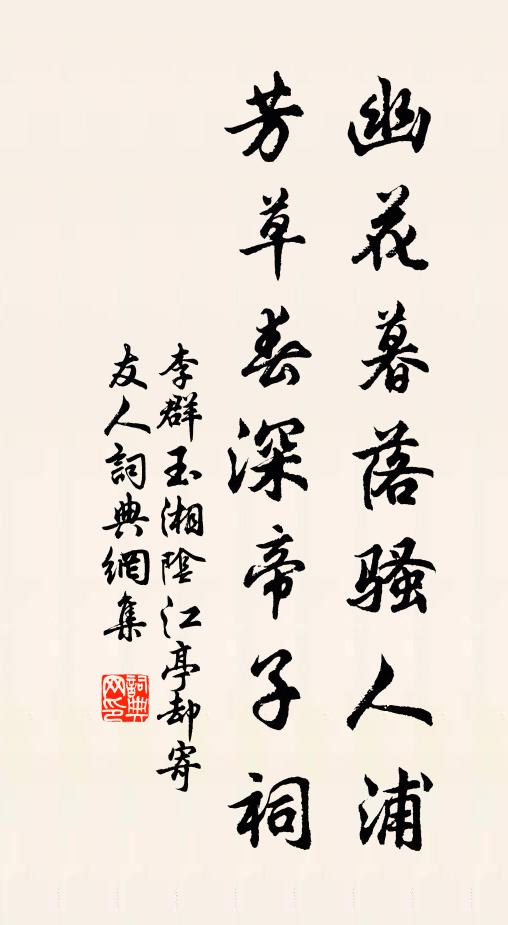 幽花暮落骚人浦
芳草春深帝子祠
李群玉湘陰江亭却寄
友人詞典網集
詞典
网印